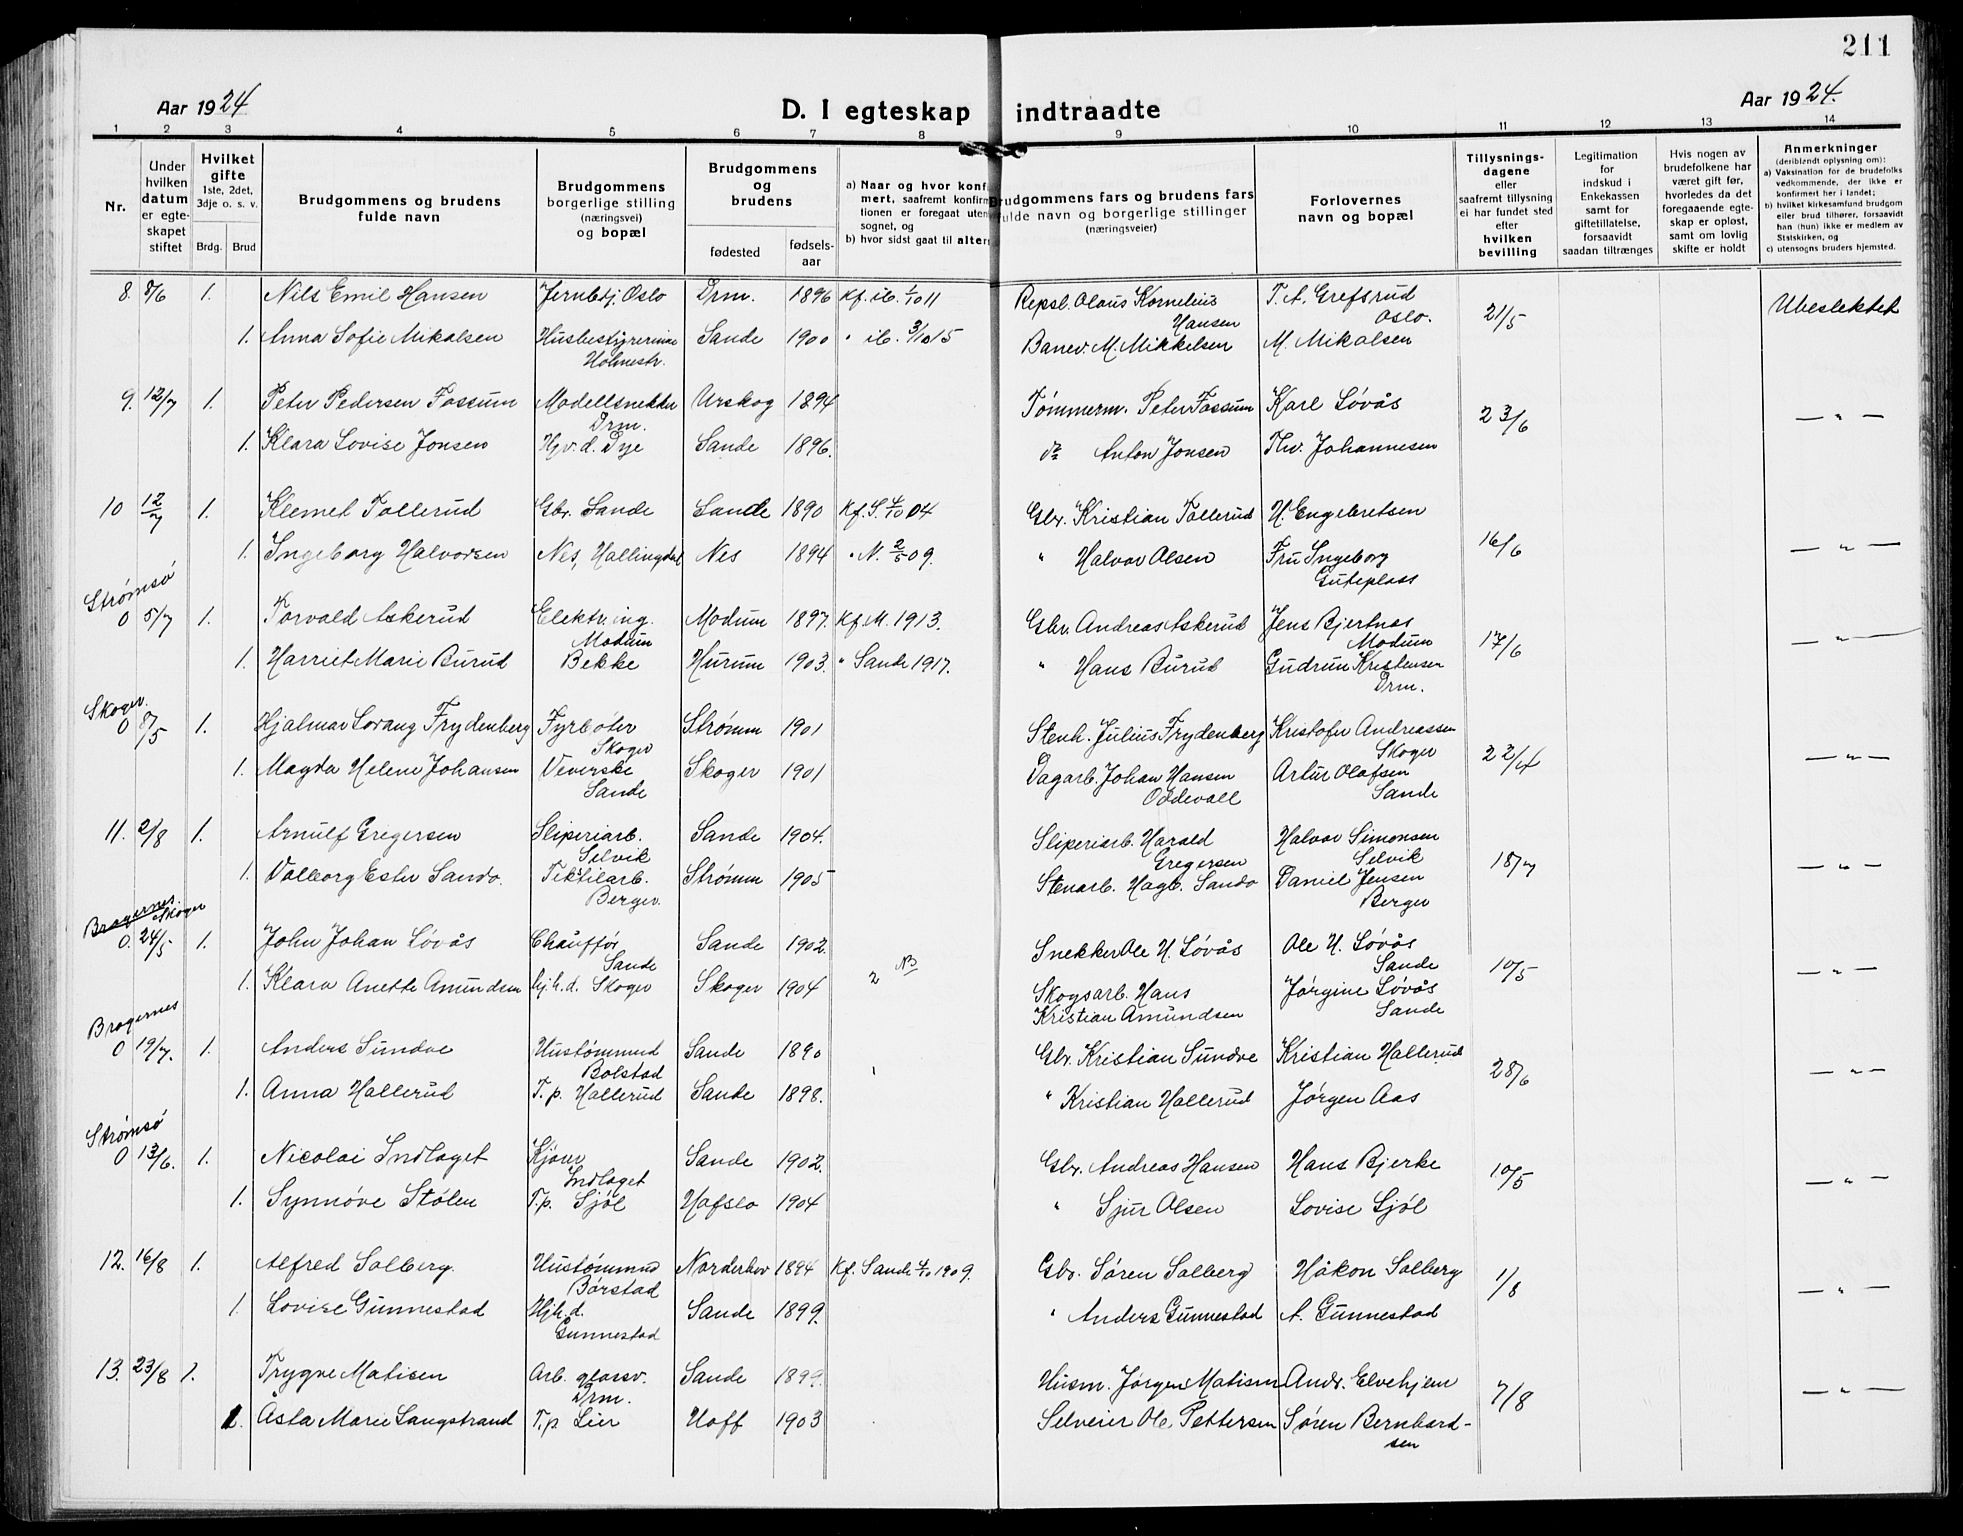 211
Aar 1924 D. I egteskap indtraadte Aar 1924.
1 2 3 4 5 6 7 8 9 10 11 12 13 14
Nr.
Under hvilken datum er egteskapet stiftet
Hvilket gifte 1ste, 2det, 3dje o. s. v. Brdg. Brud
Brudgommens og brudens fulde navn
Brudgommens borgerlige stilling (næringsvei) og bopæl
Brudgommens og brudens fødested fødsels-aar
a) Naar og hvor konf mert, saafremt konfirm tionen er foregaat uten sognet, og
b) hvor sidst gaat til altern
Brudgommens fars og brudens fars fulde navn og borgerlige stillinger (næringsveier)
Forlovernes navn og bopæl
Tillysnings-dagene eller saafremt tillysning ei har fundet sted efter hvilken bevilling
Legitimation for indskud i Enkekassen samt for giftetillatelse, forsaavidt saadan tiltrænges
Hvis nogen av brudefolkene har været gift før, hvorledes da det foregaaende egteskap er opløst, samt om lovlig skifte er holdt
Anmerkninger (deriblendt oplysning om):
a) Vaksination for de brudefolks vedkommende, der ikke er konfirmert her i landet;
b) hvilket kirkesamfund brudgom eller brud tilhører, forsaavidt han (hun) ikke er medlem av Statskirken, og
c) utensogns bruders hjemsted.
8. 8/6 1. Nils Emil Hansen Jernbdj. Oslo Drm. 1896 Kf. ib. 1/10 11 Repsl. Olaus Kornelius Hansen T. A. Grefsrud Oslo. 21/5 Ubeslektet
1. Anna Sofie Mikalsen Husbestyrerinne Holmestr. Sande 1900 " ib. 3/10 15 Banev. M. Mikkelsen M. Mikalsen
9. 12/7 1. Peter Pedersen Fossum Modellsnekker Drm. Urskog 1894 Tømmerm. Peter Fossum Karl Løvås 23/6 — " —
1. Klara Lovise Jonsen Hjv. d. Dye Sande 1896. do Anton Jonsen Thv. Johannesen
10 12/7 1. Klemet Tollerud Gbr. Sande Sande 1890 Kf. S. 4/10 04 Gbr. Kristian Tollerud H. Engebretsen 16/6 — " —
1. Ingeborg Halvorsen Nes, Hallingdal Nes 1894 " N. 2/5 09. " Halvor Olsen Fru Ingeborg Guteplass
Strømsø
0 5/7 1. Torvald Askerud Elektr. ing. Modum Modum 1897. Kf. M. 1913. Gbr. Andreas Askerud Jens Bjertnæs Modum 17/6 — " —
1. Harriet Marie Burud Bekke Hurum 1903. " Sande 1917. " Hans Burud Gudrun Kristensen Drm.
Skoger.
0 8/5 1. Hjalmar Lorang Frydenberg Fyrbøter Skoger Strømm 1901 Stenh. Julius Frydenberg Kristofer Andreassen Skoger 22/4 — " —
1. Magda Helene Johansen Veverske Sande Skoger 1901 Dagarb. Johan Hansen Oddevall Artur Olafsen Sande
11. 2/8 1. Arnulf Gregersen Sliperiarb. Selvik Sande 1904. Sliperiarb. Harald Gregersen Halvor Simonsen Selvik 18/7 — " —
1. Valborg Ester Sando. Tekstilarb. Berger. Strømm 1905 Stenarb. Hagb. Sando Daniel Jensen Berger
Bragernes. Skoger
0. 24/5 1. John Johan Løvås Chauffør Sande Sande 1902. Snekker Ole H. Løvås Ole H. Løvås Sande 10/5 — " —
1. Klara Anette Amundsen hj. h. d. Skoger Skoger 1904 2 NB Skogsarb. Hans Kristian Amundsen Jørgine Løvås Sande
Bragernes
0 19/7. 1. Anders Sundve Hustømmmd Bolstad Sande 1890 Gbr. Kristian Sundve Kristian Hallerud 28/6 — " —
1. Anna Hallerud T. p. Hallerud Sande 1898. " Kristian Hallerud Jørgen Aas
Strømsø
0 13/6. 1. Nicolai Indlaget Kjører Indlaget Sande 1902. Gbr. Andreas Hansen Hans Bjerke 10/5 — " —
1. Synnøve Stølen T. p. Sjøl Hafslo 1904 " Sjur Olsen Lovise Sjøl
12. 16/8 1. Alfred Solberg. Hustømmmd Børstad Norderhov 1894 Kf. Sande 4/10 1909. Gbr. Søren Solberg Håkon Solberg 1/8 — " —
1. Lovise Gunnestad Hjh. d. Gunnestad Sande 1899. " Anders Gunnestad A. Gunnestad
13. 23/8 1. Trygve Matisen Arb. glassv. Drm. Sande 1899. Husm. Jørgen Matisen Andr. Elvehjem 7/8 — " —
1. Åsta Marie Langstrand T. p. Lier Hoff 1903 Selveier Ole Pettersen Søren Bernhard-sen